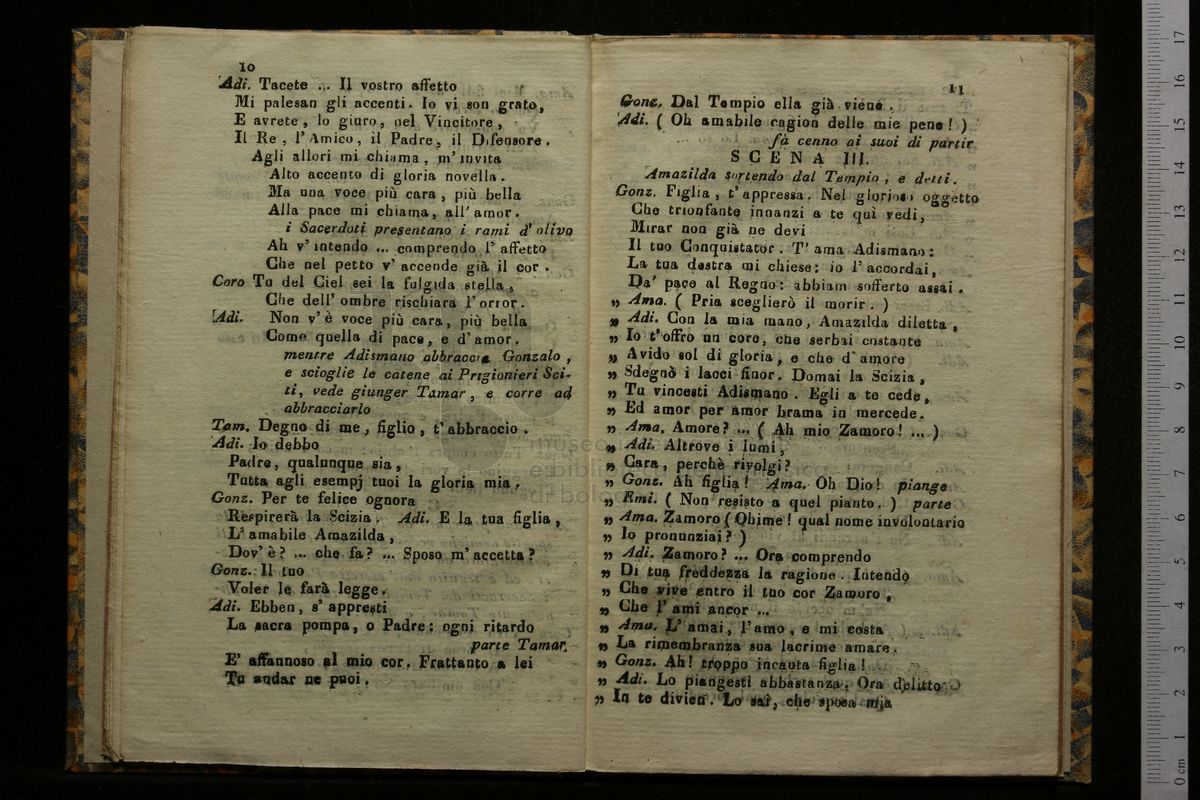 10
Adi. Tacete ... Il vostro affetto
Mi palesan gli accenti. Io vi son grato,
E avrete, lo giuro, nel Vincitore,
Il Re, l'Amico, il Padre, il Difensore.
Agli allori mi chiama, m'invita
Alto accento di gloria novella.
Ma una voce più cara, più bella
Alla pace mi chiama, all'amor.
i Sacerdoti presentano i rami d'olivo
Ah v'intendo ... comprendo l'affetto
Che nel petto v'accende già il cor.
Coro Tu del Ciel sei la fulgida stella,
Che dell'ombre rischiara l'orror.
Adi. Non v'è voce più cara, più bella
Come quella di pace, e d'amor.
mentre Adismano abbraccia Gonzalo,
e scioglie le catene ai Prigionieri Sci-
ti, vede giunger Tamar, e corre ad
abbracciarlo
Tam. Degno di me, figlio, t'abbraccio.
Adi. Io debbo
Padre, qualunque sia,
Tutta agli esempj tuoi la gloria mia.
Gonz. Per te felice ognora
Respirerà la Scizia. Adi. E la tua figlia,
L'amabile Amazilda,
Dov'è? ... che fa? ... Sposo m'accetta?
Gonz. Il tuo
Voler le farà legge.
Adi. Ebben, s'appresti
La sacra pompa, o Padre: ogni ritardo
parte Tamar.
E' affannoso al mio cor. Frattanto a lei
Tu andar ne puoi.
11
Gonz. Dal Tempio ella già viene.
Adi. ( Oh amabile cagion delle mie pene! )
fà cenno ai suoi di partir
SCENA III.
Amazilda sortendo dal Tempio, e detti.
Gonz. Figlia, t'appressa. Nel glorioso oggetto
Che trionfante innanzi a te quì vedi,
Mirar non già ne devi
Il tuo Conquistator. T'ama Adismano:
La tua destra mi chiese: io l'accordai,
Da' pace al Regno: abbiam sofferto assai.
„ Ama. ( Pria sceglierò il morir. )
„ Adi. Con la mia mano, Amazilda diletta,
„ Io t'offro un core, che serbai costante
„ Avido sol di gloria, e che d'amore
„ Sdegnò i lacci finor. Domai la Scizia,
„ Tu vincesti Adismano. Egli a te cede,
„ Ed amor per amor brama in mercede.
„ Ama. Amore? ... ( Ah mio Zamoro! ... )
„ Adi. Altrove i lumi,
„ Cara, perchè rivolgi?
„ Gonz. Ah figlia! Ama. Oh Dio! piange
„ Emi. ( Non resisto a quel pianto. ) parte
„ Ama. Zamoro ( Ohime! qual nome involontario
„ Io pronunziai? )
„ Adi. Zamoro? ... Ora comprendo
„ Di tua freddezza la ragione. Intendo
„ Che vive entro il tuo cor Zamoro,
„ Che l'ami ancor ...
„ Ama. L'amai, l'amo, e mi costa
„ La rimembranza sua lacrime amare.
„ Gonz. Ah! troppo incauta figlia!
„ Adi. Lo piangesti abbastanza. Ora delitto
„ In te divien. Lo sai, che sposa mia